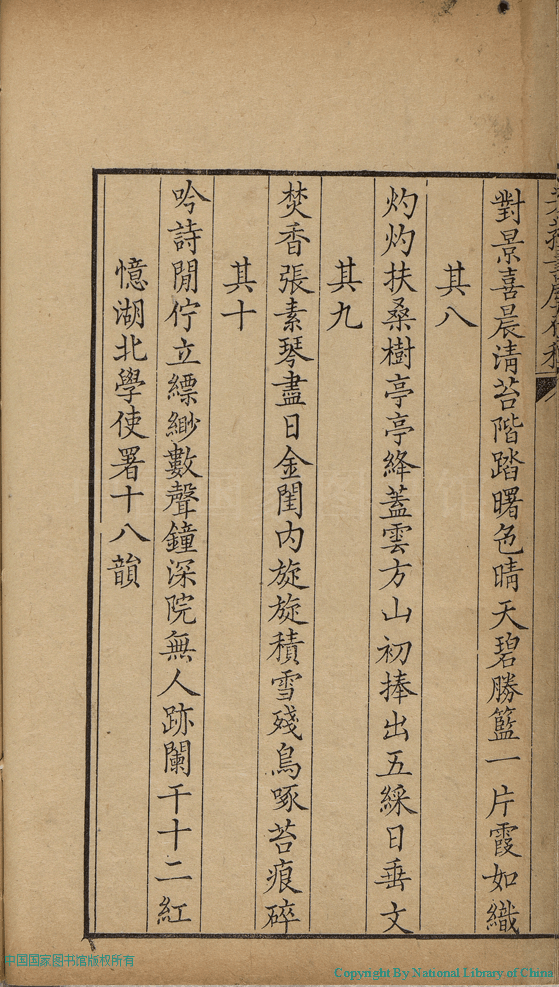 對景喜晨清苔階踏曙色晴天碧勝籃一片霞如織
其八
灼灼扶桑樹亭亭絳蓋雲方山初捧出五綵日垂文
其九
焚香張素琴盡日金閨内旋旋積雪殘鳥啄苔痕碎
其十
吟詩閒佇立縹緲數聲鐘深院無人跡闌干十二紅
憶湖北學使署十八韻
中国国家图书馆版权所有
Copyright By National Library of China